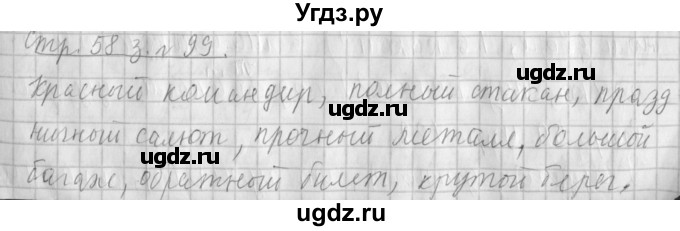 Угдз.ру
Стр. 58 з. № 99.
Красный командир, полный стакан, празд
ничный салют, прочный металл, большой
багаж, обратный билет, крутой берег.
ugdz.ru
ugdz.ru
ugdz.ru
ugdz.ru
ugdz.ru
ugdz.ru
ugdz.ru